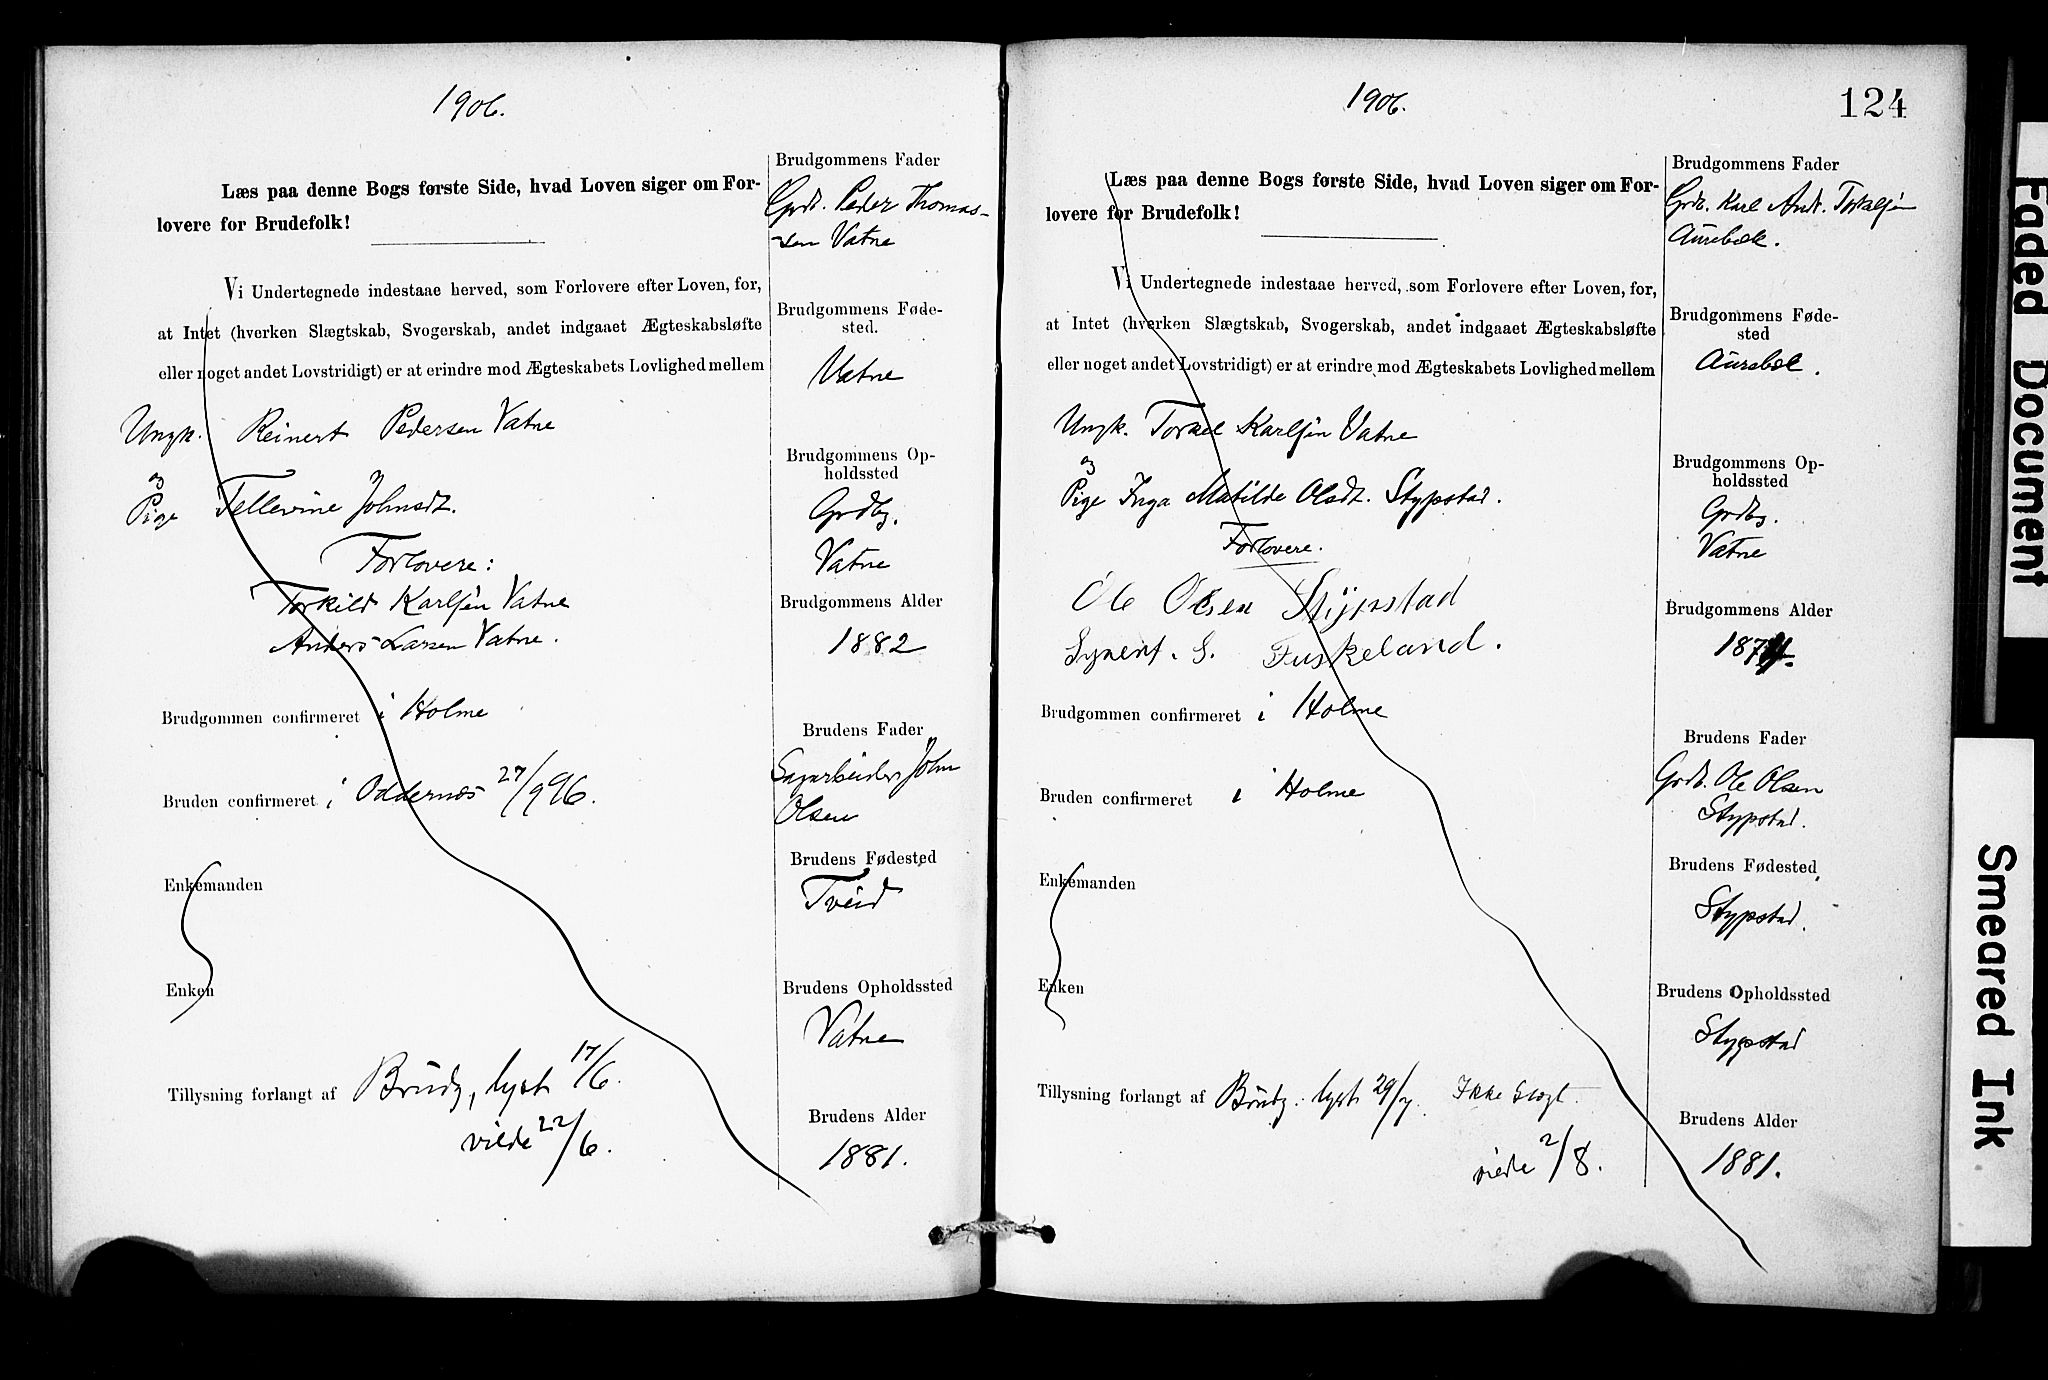 1906.
Læs paa denne Bogs første Side, hvad Loven siger om For-
lovere for Brudefolk!
Vi Undertegnede indestaae herved, som Forlovere efter Loven, for,
at Intet (hverken Slægtskab, Svogerskab, andet indgaaet Ægteskabsløfte
eller noget andet Lovstridigt) er at erindre mod Ægteskabets Lovlighed mellem
Ungk. Reinert Pedersen Vatne
og
Pige Tellevine Johnsdt.
Forlovere:
Torkild Karlsen Vatne
Anders Larsen Vatne.
Brudgommen confirmeret i Holme
Bruden confirmeret i Oddernes 27/9 96.
Enkemanden
Enken
Tillysning forlangt af Brudg, lyst 17/6.
viede 22/6.
Brudgommens Fader
Grdb. Peder Thomas-
sen Vatne
Brudgommens Føde-
sted.
Vatne
Brudgommens Op-
holdssted
Grdbg.
Vatne
Brudgommens Alder
1882
Brudens Fader
Sagarbeider John
Olsen
Brudens Fødested
Tveid
Brudens Opholdssted
Vatne
Brudens Alder
1881.
1906.
124
Læs paa denne Bogs første Side, hvad Loven siger om For-
lovere for Brudefolk!
Vi Undertegnede indestaae herved, som Forlovere efter Loven, for,
at Intet (hverken Slægtskab, Svogerskab, andet indgaaet Ægteskabsløfte
eller noget andet Lovstridigt) er at erindre mod Ægteskabets Lovlighed mellem
Ungk. Torkel Karlsen Vatne
og
Pige Inga Matilde Olsdt. Stypstad.
Forlovere.
Ole Olsen Stypstad
Synert. S. Fuskeland.
Brudgommen confirmeret i Holme
Bruden confirmeret i Holme
Enkemanden
Enken
Tillysning forlangt af Brudg. lyst 29/7. Ikke Slægt.
viede 2/8.
Brudgommens Fader
Grdb. Karl And. Torkelsen
Aurebæk.
Brudgommens Føde-
sted
Aurebæk.
Brudgommens Op-
holdssted
Grdbg.
Vatne
Brudgommens Alder
Brudens Fader
Grdb. Ole Olsen
Stypstad.
Brudens Fødested
Stypstad.
Brudens Opholdssted
Stypstad
Brudens Alder
1881.
Faded Document
Smeared Ink